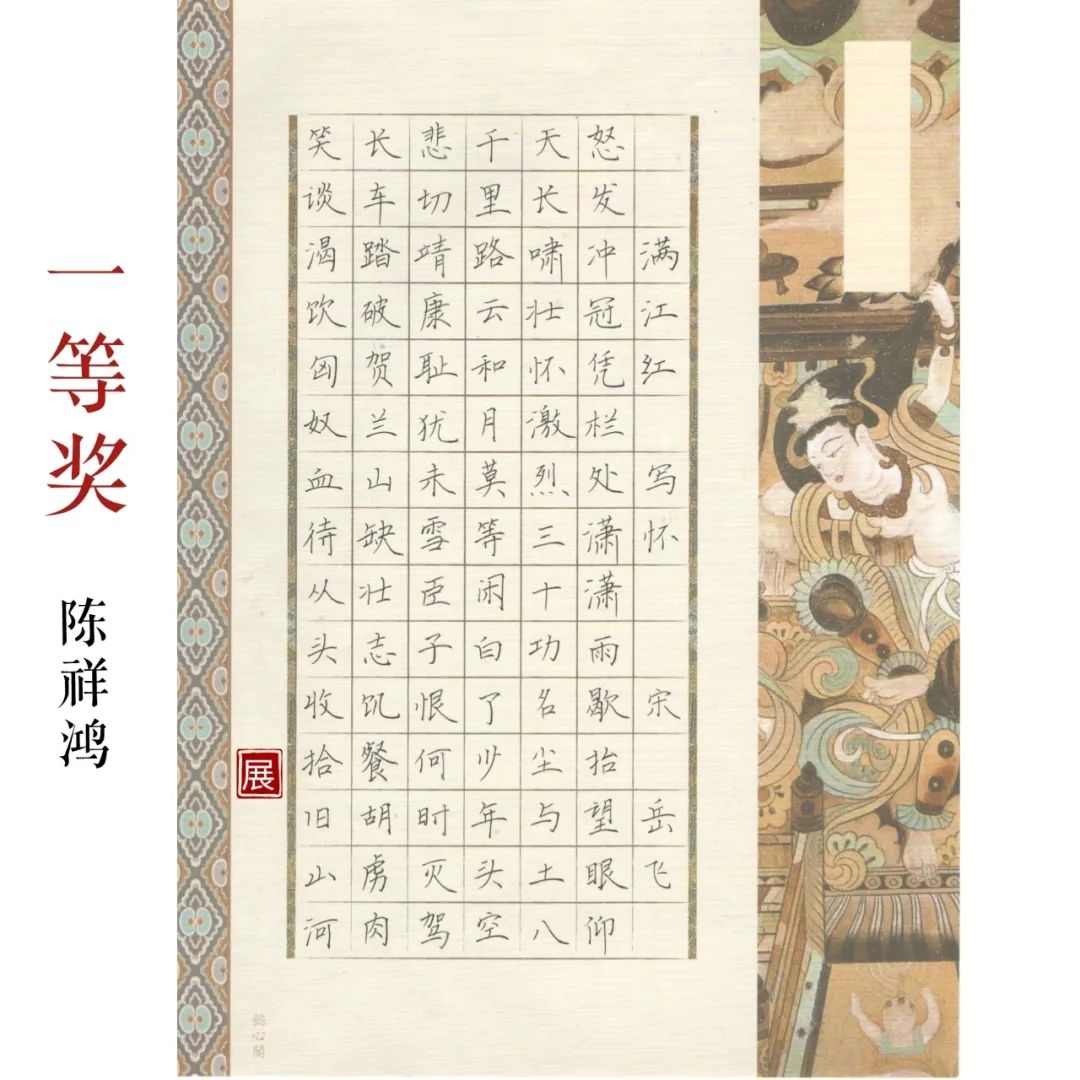 满江红 写怀 宋 岳飞
怒发冲冠凭栏处潇潇雨歇抬望眼仰
天长啸壮怀激烈三十功名尘与土八
千里路云和月莫等闲白了少年头空
悲切靖康耻犹未雪臣子恨何时灭驾
长车踏破贺兰山缺壮志饥餐胡虏肉
笑谈渴饮匈奴血待从头收拾旧山河
展
一等奖
陈祥鸿